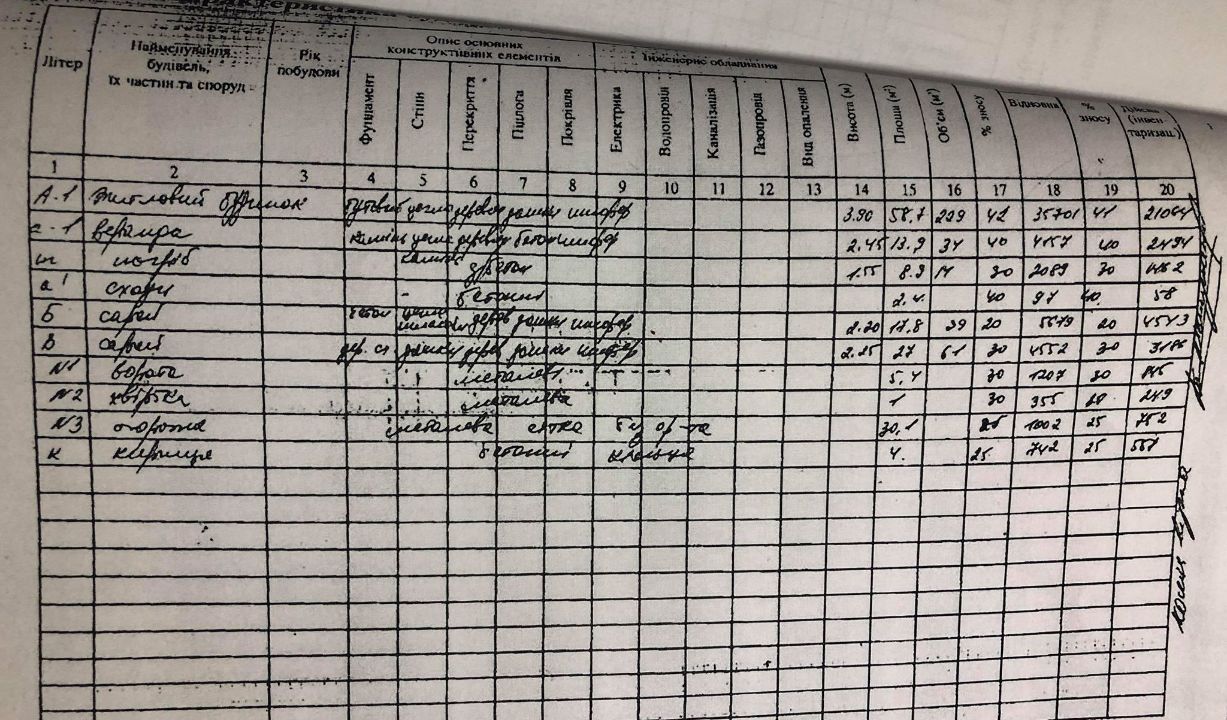 Опис основних
конструктивних елементів
Інженерне обладнання
Літер
Найменування
будівель,
їх частин та споруд
Рік
побудови
Фундамент
Стіни
Перекриття
Підлога
Покрівля
Електрика
Водопровід
Каналізація
Газопровід
Вид опалення
Висота (м)
Площа (м²)
Об'єм (м³)
% зносу
Відновна
% зносу
(інвен-
таризац.)
1 2 3 4 5 6 7 8 9 10 11 12 13 14 15 16 17 18 19 20
А-1 житловий будинок бутовий цегла дерево дошки шифер 3.90 58,7 229 42 35701 41 21064
а-1 веранда камінь цегла дерево бетон шифер 2.45 13.9 34 40 4157 40 2494
погріб камінь з/бетон 1.55 8.9 14 30 2089 30 1462
а' сходи бетонні 2.4 40 97 40 58
Б сарай бетон цегла дерев дошки шифер 2.20 17.8 39 20 5679 20 4543
В сарай дер. ст дошки дерев дошки шифер 2.25 27 61 30 4552 30 3186
N1 ворота металеві 5,4 30 1207 30 845
N2 хвіртка металева 1 30 355 249
N3 огорожа металева сітка 30,1 25 1002 25 752
к криниця бетонні кільця 4. 25 742 25